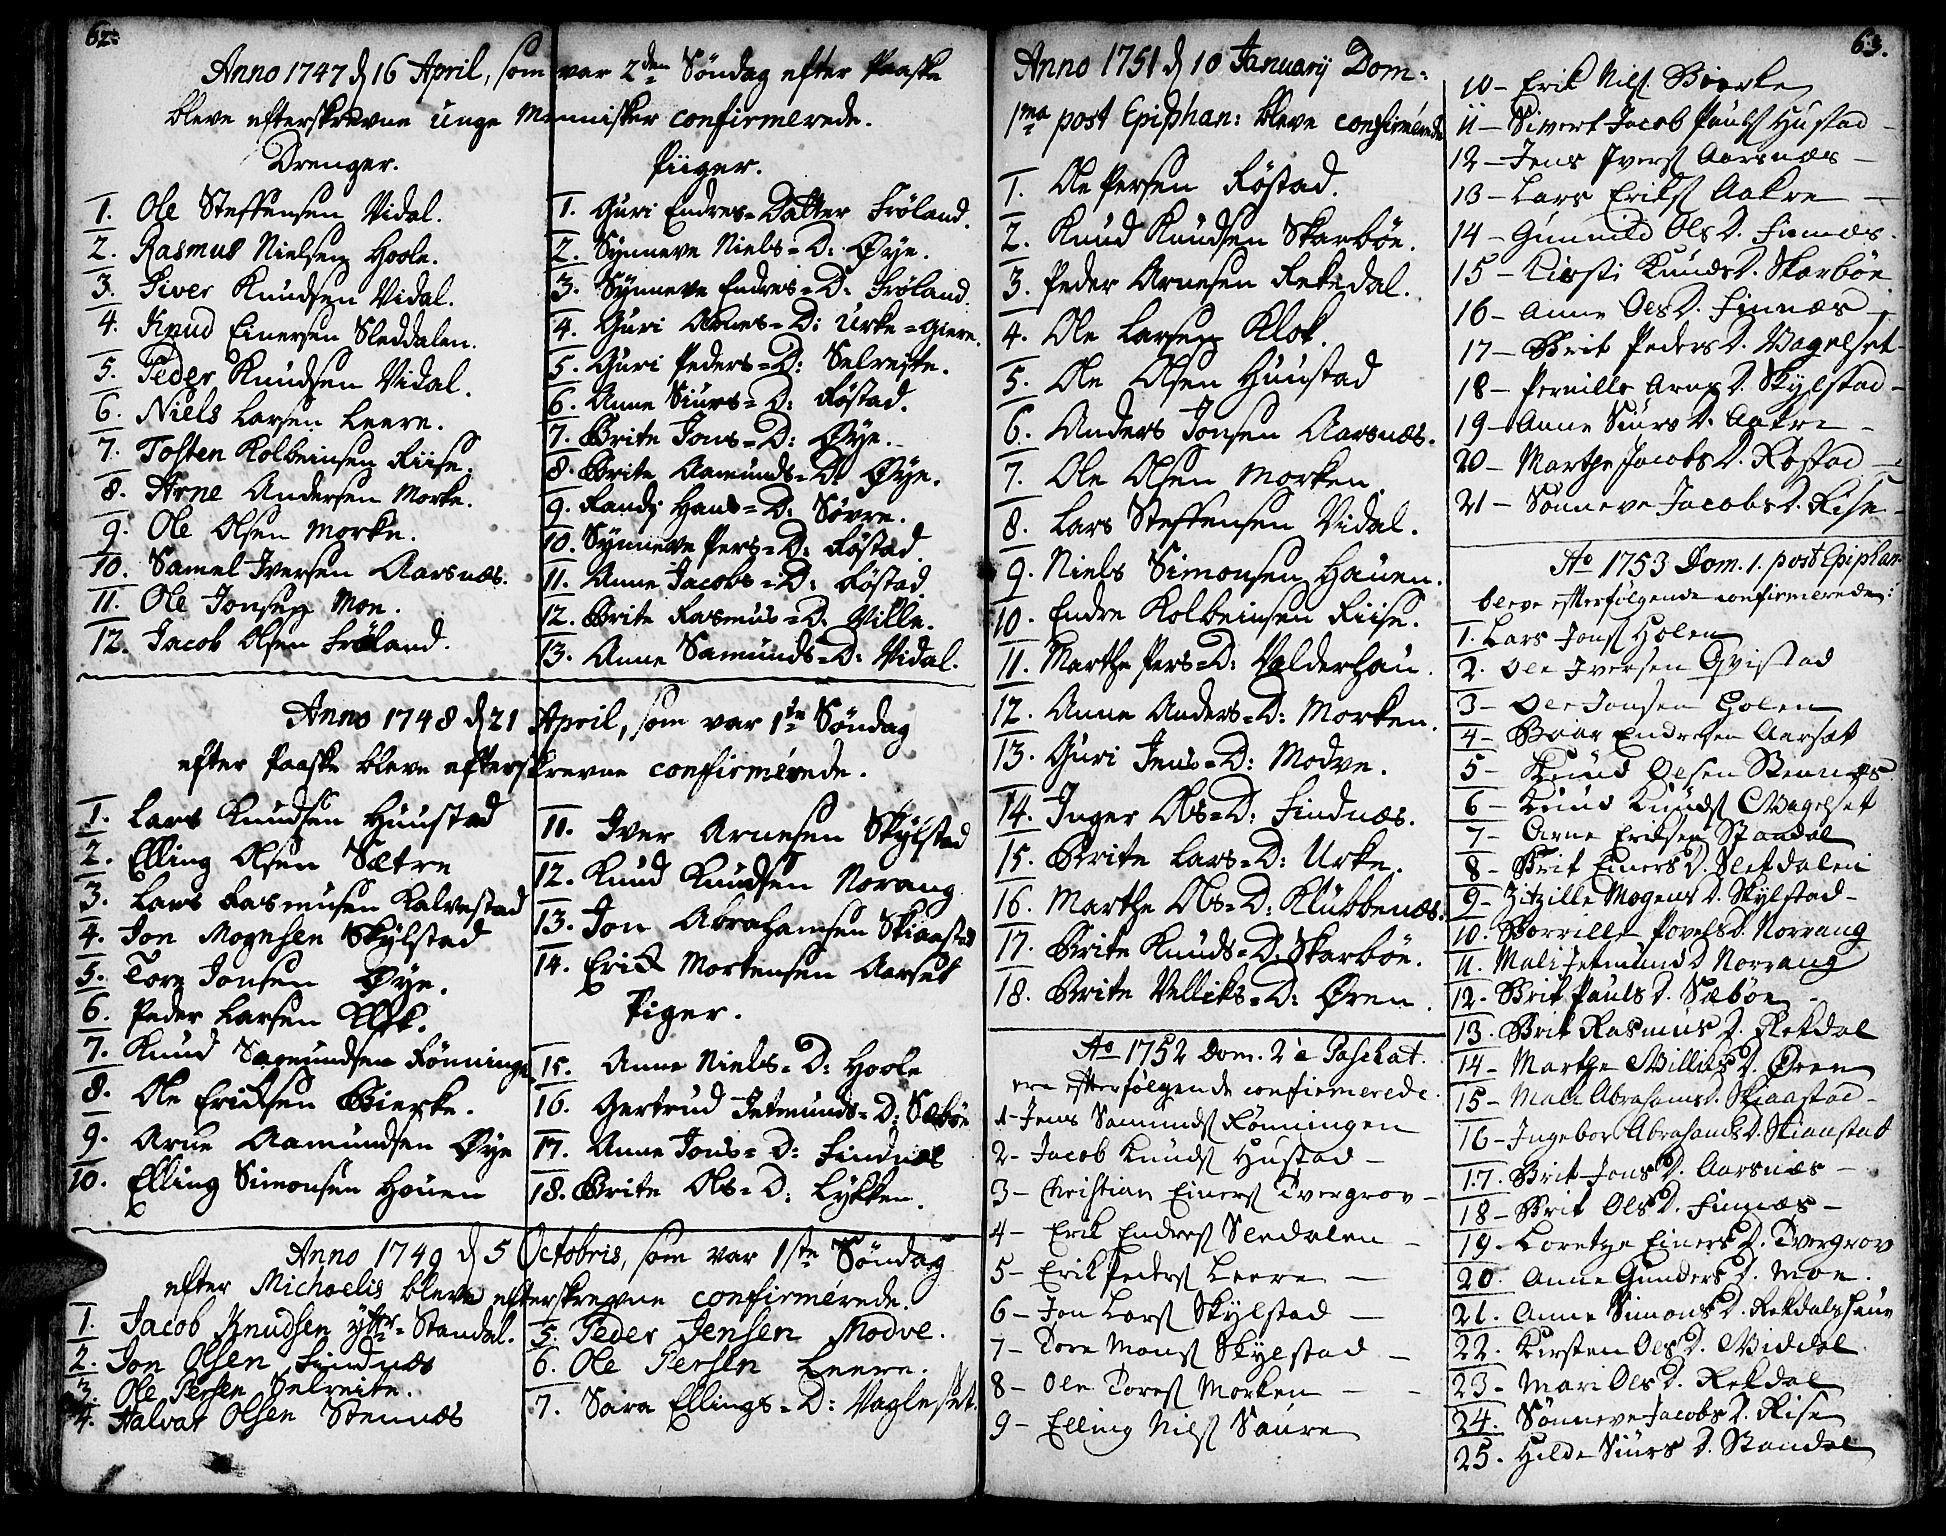 62.
Anno 1747 d 16 April, som var 2den Söndag efter Paaske
bleve efterskrevne unge Mennisker confirmerede.
Drenger.
1. Ole Steffensen Vidal.
2. Rasmus Nielsen Hoole.
3. Siver Knudsen Vidal.
4. Knud Einersen Sleddalen.
5. Peder Knudsen Vidal.
6. Niels Larsen Leere.
7. Tosten Kolbeinsen Riise.
8. Arne Andersen Morke.
9. Ole Olsen Morke.
10. Samel Iversen Aarsnæs.
11. Ole Jonsen Moe.
12. Jacob Olsen Fröland.
Piiger.
1. Guri Endres=Datter Fröland.
2. Synneve Niels=D: Øye.
3. Synneve Endres=D: Fröland.
4. Guri Arnes=D: Urke=giere.
5. Guri Peders=D: Selreite.
6. Anne Siurs=D: Röstad.
7. Brite Jons=D: Øye.
8. Brite Aamunds=D: Øye.
9. Randi Hans=D: Sövre.
10. Synneve Pers=D: Röstad.
11. Anne Jacobs=D: Röstad.
12. Brite Rasmus=D: Ville.
13. Anne Samunds=D: Vidal.
Anno 1748 d 21 April, som var 1ste Söndag
efter Paaske bleve efterskrevne confirmérede.
1. Lars Knudsen Huustad
2. Elling Olsen Sætre
3. Lars Rasmusen Kalvestad
4. Jon Mogensen Skylstad
5. Tore Jonsen Øye.
6. Peder Larsen Klok.
7. Knud Samundsen Rönninge
8. Ole Ericksen Bierke.
9. Arne Aamundsen Øye
10. Elling Simonsen Houen
11. Iver Arnesen Skylstad
12. Knud Knudsen Norang
13. Jon Abrahamsen Skiaastad
14. Erick Mortensen Aarset
Piger.
15. Anne Niels=D: Hoole
16. Gertrud Jetmunds=D: Sæböe
17. Anne Jons=D: Findnæs
18. Brite Ols=D: Lykken.
Anno 1749 d 5 Octobris, som var 1ste Söndag
efter Michaelis bleve efterskrevne confirmérede.
1. Jacob Knudsen ytr=Standal.
2. Jon Olsen Findnæs
3. Ole Persen Selreite.
4. Halvar Olsen Stennæs
5. Peder Jensen Modve.
6. Ole Persen Leere.
7. Sara Ellings=D: Vagleset.
63.
Anno 1751 d 10 January Dom:
1ma post Epiphan: bleve confirmérede
1. Ole Persen Röstad.
2. Knud Knudsen Skarböe.
3. Peder Arnesen Rekedal.
4. Ole Larsen Klok.
5. Ole Olsen Huustad
6. Anders Jonsen Aarsnæs.
7. Ole Olsen Morken.
8. Lars Steffensen Vidal.
9. Niels Simonsen Hauen.
10. Endre Kolbeinsen Riise.
11. Marthe Pers=D: Valderhau.
12. Anne Anders=D: Morken.
13. Guri Jens=D: Modve.
14. Inger Ols=D: Findnæs.
15. Brite Lars=D: Urke.
16. Marthe Ols=D: Klubbenæs.
17. Brite Knuds=D: Skarböe.
18. Brite Velliks=D: Ören.
Ao 1752 Dom. 2 a Paschat.
ere efterfølgende confirmerede.
1- Jens Samunds Rönningen
2- Jacob Knuds Hustad -
3- Christian Einers Tvergrov -
4- Erik Enders Sledalen -
5- Erik Peders Leere -
6- Jon Lars Skylstad -
7- Tore Mons Skylstad -
8- Ole Tores Morken - -
9- Elling Nils Saure
10- Erik Nils Bierke
11- Sivert Jacob Pauls Hustad -
12- Jens Ivers Aarsnæs -
13- Lars Eriks Aakre -
14- Gunnild Ols D. Finnæs.
15- Kirsti Knuds D. Skarböe
16- Anne Ols D. Finnæs -
17- Brit Peders D. Vagelset
18- Pernille Arns D. Skylstad -
19- Anne Siurs D. Aakre -
20- Marthe Jacobs D. Röstad -
21- Sönneve Jacobs D. Rise -
Ao 1753 Dom. 1. post Epiphan.
bleve efterfølgende confirmerede:
1. Lars Jons Holen
2. Ole Iversen Qvistad
3- Ole Jonsen Holen
4- Baar Endresen Aarsæt
5- Knud Olsen Stennæs
6- Knud Knuds Vagelset
7- Arne Eriksen Standal
8- Brit Einers D. Sletdalen
9- Zitzille Mogens D. Skylstad -
10. Borrille Povels D. Norrang
11. Mali Jetmund D Norrang
12- Brit Pauls D. Sæböe -
13. Brit Rasmus D. Rekdal
14- Marthe Villiks D. Ören
15- Mali Abrahams D. Skiaastad -
16- Ingebor Abrahams D. Skiaastad
17. Brit Jons D. Aarsnæs -
18- Brit Ols D. Finnæs -
19. Loretze Einers D. Tvergrov
20. Anne Gunders D. Moe.
21. Anne Simons D. Rekdalshaue
22. Kirsten Ols D. Viddal
23- Mari Ols D. Rekdal
24. Sönneve Jacobs D. Rise
25. Hilde Siurs D. Standal